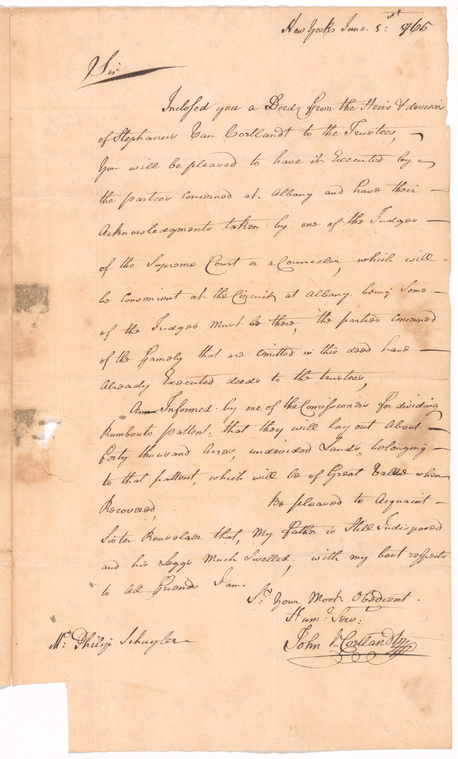 New York June 5: 1766
Sir
Inclosed you a Deed from the Heirs & devisees
of Stephanus Van Cortlandt to the Trustees,
You will be pleased to have it Executed by
the parties concerned at Albany and have their
Acknowledgments taken by one of the Judges
of the Supreme Court or a Councelor, which will
be convenient at the Circuit at Albany. being Some
of the Judges must be there, the parties concerned
of the Family that are omitted in this deed have
Already Executed deeds to the trustees,
Am Informed by one of the Comissioners for dividing
Rumbouts patten: that they will lay out About
forty thousand Acres, undivided Lands, belonging
to that pattent, which will be of Great Vallue when
Recovered, Be pleased to Acquaint
Sister Renselaer that, My father is Still Indisposed
and his Leggs Much Swelled, with my best respects
to All friends I am.
Sr. Your Most Obedient.
Hum: Serv:
John V Cortlandt
Mr. Philip Schuyler